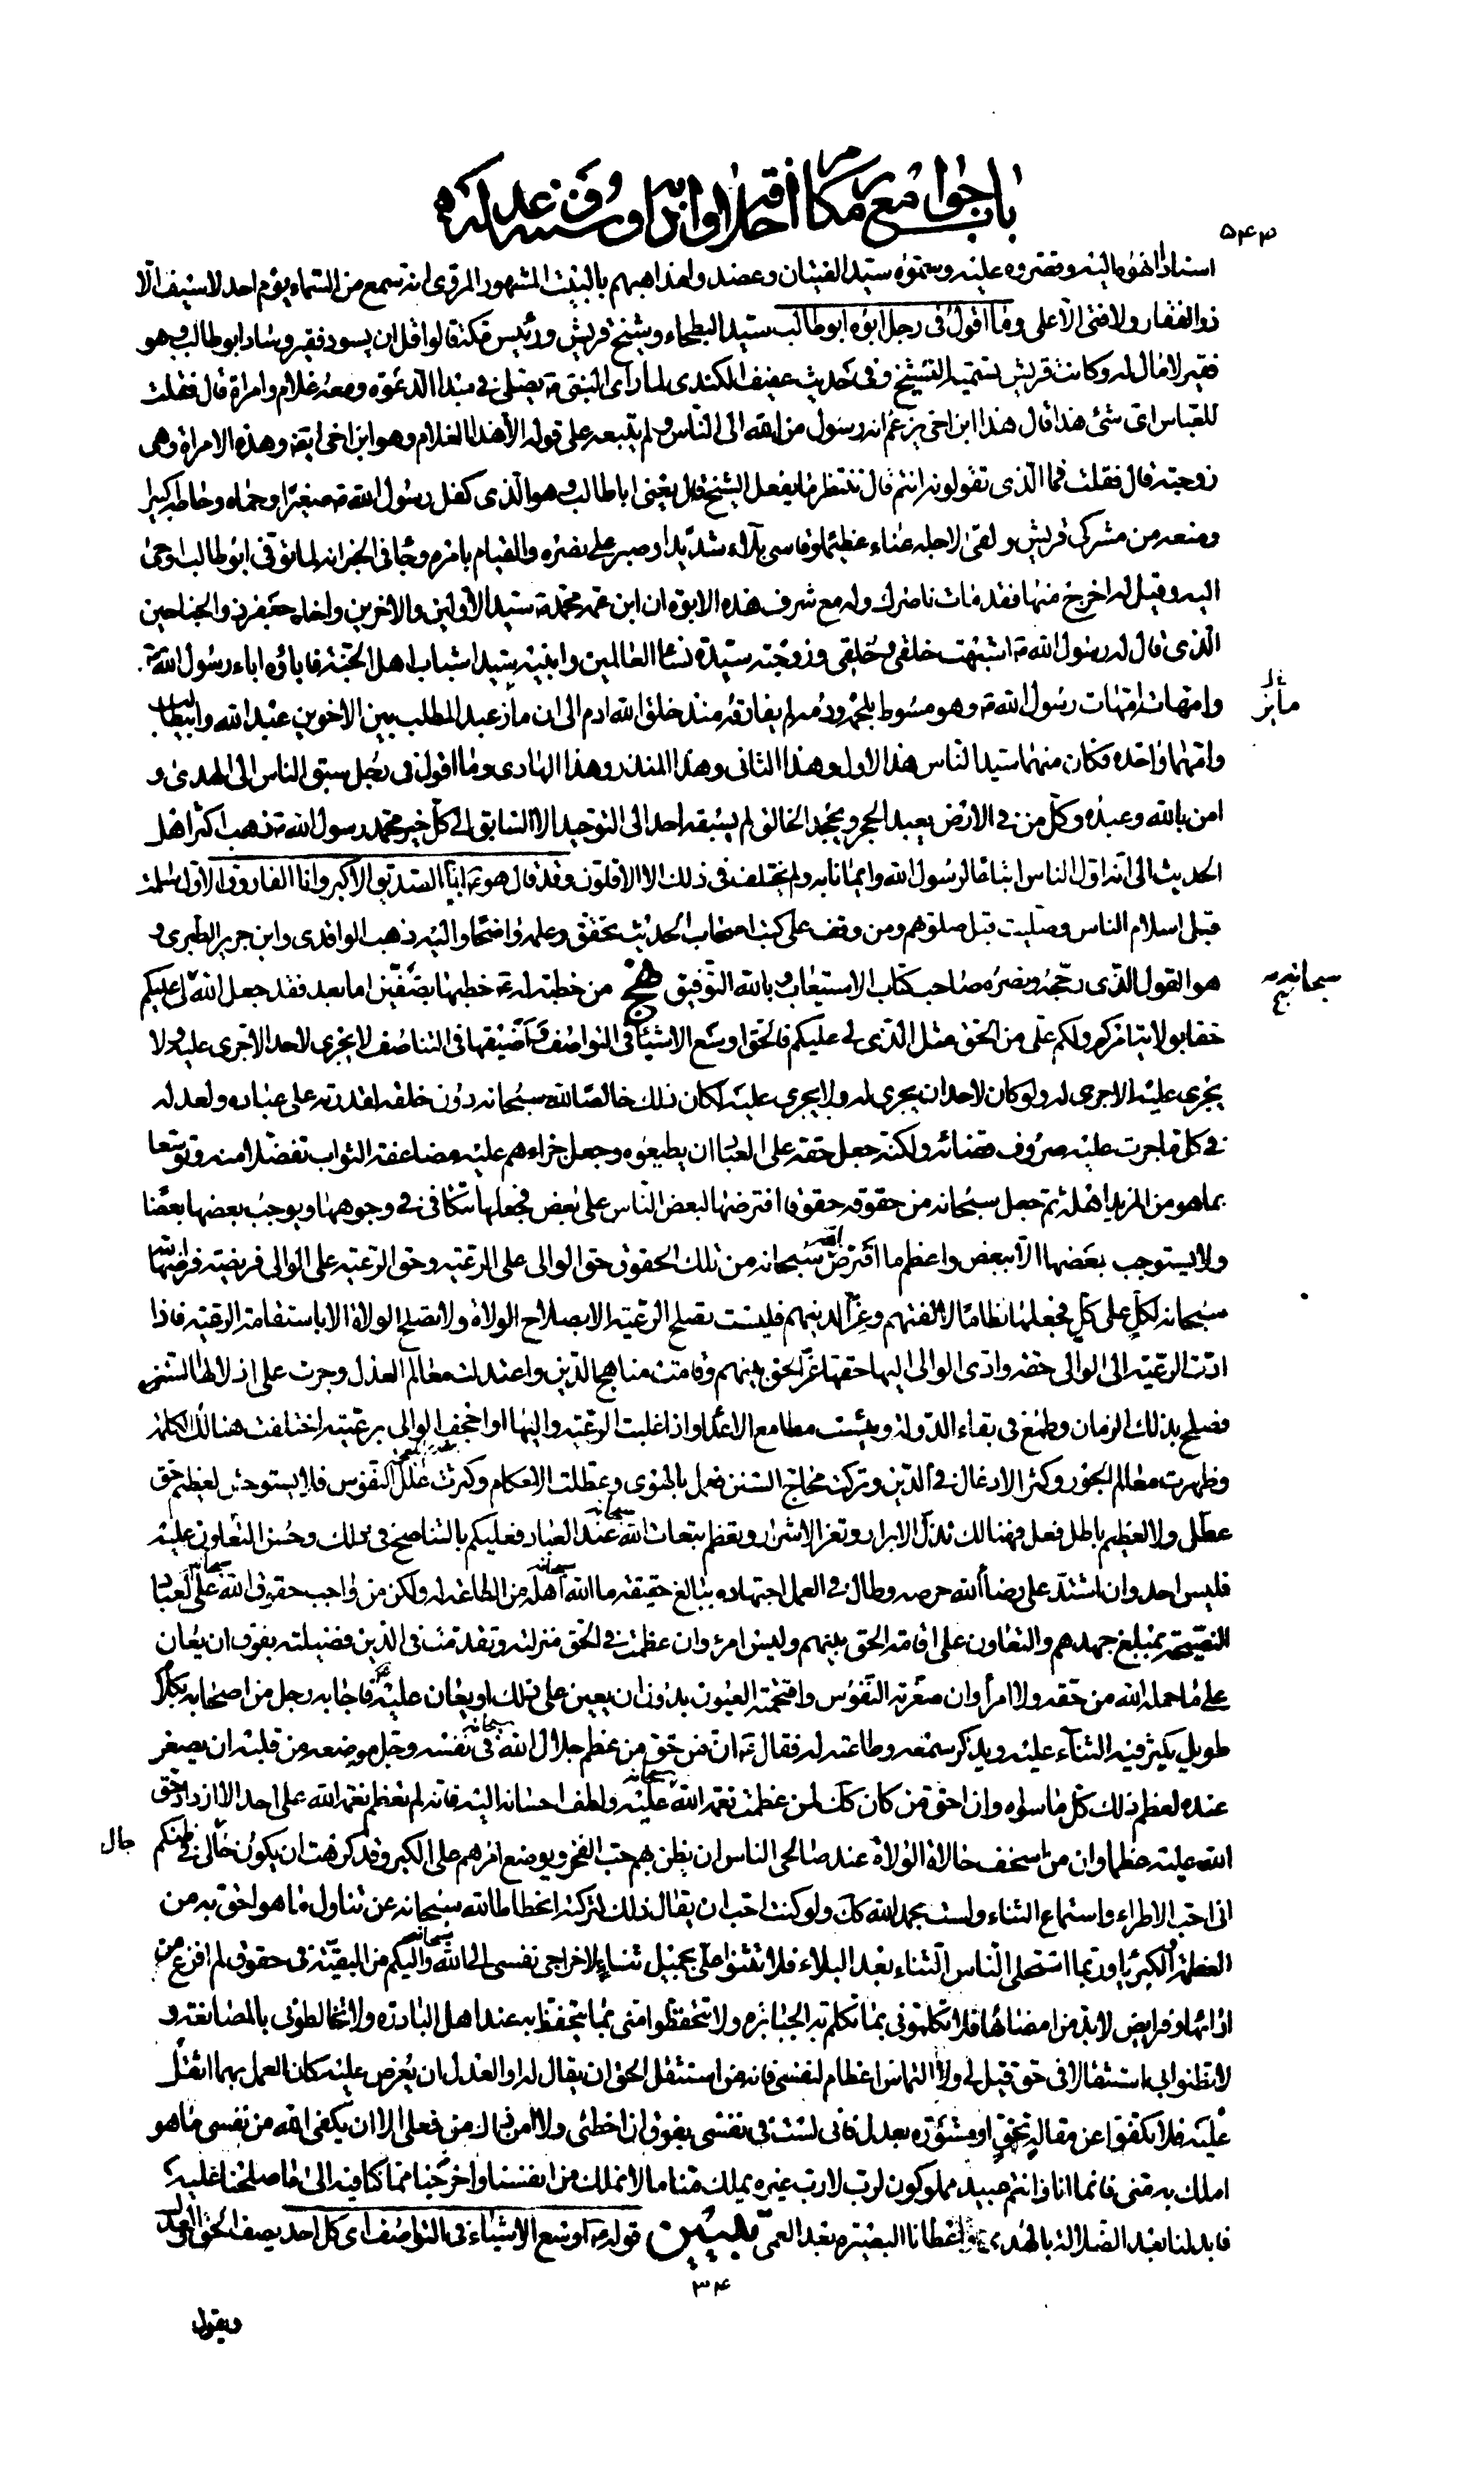 باب جوامع مكارم أخلاقه وآدابه وسننه وعدله
۵۴۴
اسناداً انهوه اليه وقصروه عليه وسموه سيد الفتيان وعضدوا مذاهبهم بالبيت المشهور المروى انه سمع من السماء يوم احد لا سيف الا
ذو الفقار ولا فتى الا على وما اقول فى رجل ابوه ابو طالب سيد البطحاء وشيخ قريش ورئيس مكة قالوا قل ان يسود فقير وساد ابو طالب وهو
فقير لا مال له وكانت قريش تسميه الشيخ وفى حديث عفيف الكندى لما راى النبى ص يصلى فى مبدا الدعوة ومعه غلام وامراة قال فقلت
للعباس اى شئ هذا قال هذا ابن اخى يزعم انه رسول من الله الى الناس ولم يتبعه على قوله الا هذا الغلام وهو ابن اخى ايضا وهذه الامراة وهى
زوجته قال فقلت فما الذى تقولونه انتم قال ننتظر ما يفعل الشيخ قال يعنى ابا طالب وهو الذى كفل رسول الله ص صغيرا وحماه وحاطه كبيرا
ومنعه من مشركى قريش ولقى لاجله عناء عظيما وقاسى بلاء شديدا وصبر على نصره والقيام بامره وجاء فى الخبر انه لما توفى ابو طالب اوحى
اليه وقيل له اخرج منها فقد مات ناصرك وله مع شرف هذه الابوة ان ابن عمه محمد ص سيد الاولين والاخرين واخاه جعفر ذو الجناحين
الذى قال له رسول الله ص اشبهت خلقى وخلقى وزوجته سيدة نساء العالمين وابنيه سيدا شباب اهل الجنة فاباؤه اباء رسول الله ص
وامهاته امهات رسول الله ص وهو مسوط بلحمه ودمه لم يفارقه منذ خلق الله ادم الى ان ماز عبد المطلب بين الاخوين عبد الله وابيطالب
وامهما واحدة فكان منهما سيدا الناس هذا الاول وهذا الثانى وهذا المنذر وهذا الهادى وما اقول فى رجل سبق الناس الى الهدى و
امن بالله وعبده وكل من فى الارض يعبد الحجر ويجحد الخالق لم يسبقه احد الى التوحيد الا السابق الى كل خير محمد رسول الله ص ذهب اكثر اهل
الحديث الى انه اول الناس اتباعا لرسول الله وايمانا به ولم يختلف فى ذلك الا الاقلون وقد قال هو ع انا الصديق الاكبر وانا الفاروق الاول اسلمت
قبل اسلام الناس وصليت قبل صلوتهم ومن وقف على كتب اصحاب الحديث تحقق وعلمه واضحا واليه ذهب الواقدى وابن جرير الطبرى و
هو القول الذى رجحه ونصره صاحب كتاب الاستيعاب وبالله التوفيق نهج من خطبة له ع خطبها بصفين اما بعد فقد جعل الله لى عليكم
حقا بولاية امركم ولكم على من الحق مثل الذى لى عليكم فالحق اوسع الاشياء فى التواصف واضيقها فى التناصف لا يجرى لاحد الا جرى عليه ولا
يجرى عليه الا جرى له ولو كان لاحد ان يجرى له ولا يجرى عليه لكان ذلك خالصا لله سبحانه دون خلقه لقدرته على عباده ولعدله
فى كل ما جرت عليه صروف قضائه ولكنه جعل حقه على العباد ان يطيعوه وجعل جزاءهم عليه مضاعفة الثواب تفضلا منه وتوسعا
بما هو من المزيد اهله ثم جعل سبحانه من حقوقه حقوقا افترضها لبعض الناس على بعض فجعلها تتكافى فى وجوهها ويوجب بعضها بعضا
ولا يستوجب بعضها الا ببعض واعظم ما افترض الله سبحانه من تلك الحقوق حق الوالى على الرعية وحق الرعية على الوالى فريضة فرضها الله
سبحانه لكل على كل فجعلها نظاما لالفتهم وعزا لدينهم فليست تصلح الرعية الا بصلاح الولاة ولا تصلح الولاة الا باستقامة الرعية فاذا
ادت الرعية الى الوالى حقه وادى الوالى اليها حقها عز الحق بينهم وقامت مناهج الدين واعتدلت معالم العدل وجرت على اذلالها السنن
فصلح بذلك الزمان وطمع فى بقاء الدولة ويئست مطامع الاعداء واذا غلبت الرعية واليها او اجحف الوالى برعيته اختلفت هنالك الكلمة
وظهرت معالم الجور وكثر الادغال فى الدين وتركت محاج السنن فعمل بالهوى وعطلت الاحكام وكثرت علل النفوس فلا يستوحش لعظيم حق
عطل ولا لعظيم باطل فعل فهنالك تذل الابرار وتعز الاشرار وتعظم تبعات الله سبحانه عند العباد فعليكم بالتناصح فى ذلك وحسن التعاون عليه
فليس احد وان اشتد على رضاء الله حرصه وطال فى العمل اجتهاده ببالغ حقيقة ما الله سبحانه اهله من الطاعة له ولكن من واجب حقوق الله سبحانه على العباد
النصيحة بمبلغ جهدهم والتعاون على اقامة الحق بينهم وليس امرء وان عظمت فى الحق منزلته وتقدمت فى الدين فضيلته بفوق ان يعان
على ما حمله الله من حقه ولا امرأ وان صغرته النفوس واقتحمته العيون بدون ان يعين على ذلك او يعان عليه فاجابه رجل من اصحابه بكلام
طويل يكثر فيه الثناء عليه ويذكر سمعه وطاعته له فقال ع ان من حق من عظم جلال الله سبحانه فى نفسه وجل موضعه من قلبه ان يصغر
عنده لعظم ذلك كل ما سواه وان احق من كان كك لمن عظمت نعمة الله سبحانه عليه ولطف احسانه اليه فانه لم تعظم نعمة الله على احد الا ازداد حق
الله عليه عظما وان من اسخف حالاة الولاة عند صالحى الناس ان يظن بهم حب الفخر ويوضع امرهم على الكبر وقد كرهت ان يكون حالى فى ظنكم
انى احب الاطراء واستماع الثناء ولست بحمد الله كك ولو كنت احب ان يقال ذلك لتركته انحطاطا لله سبحانه عن تناول ما هو احق به من
العظمة والكبرياء وربما استحلى الناس الثناء بعد البلاء فلا تثنوا على بجميل ثناء لاخراجى نفسى الى الله سبحانه واليكم من البقية فى حقوق لم افرغ من
ادائها وفرايض لا بد من امضائها فلا تكلمونى بما تكلم به الجبابرة ولا تتحفظوا منى بما يتحفظ به عند اهل البادرة ولا تخالطونى بالمصانعة و
لا تظنوا بى استثقالا فى حق قيل لى ولا التماس اعظام لنفسى فانه من استثقل الحق ان يقال له او العدل ان يعرض عليه كان العمل بهما اثقل
عليه فلا تكفوا عن مقالة بحق او مشورة بعدل فانى لست فى نفسى بفوق ان اخطئ ولا امن ذلك من فعلى الا ان يكفى الله من نفسى ما هو
املك به منى فانما انا وانتم عبيد مملوكون لرب لا رب غيره يملك منا ما لا نملك من انفسنا واخرجنا مما كنا فيه الى ما صلحنا عليه
فابدلنا بعد الضلالة بالهدى واعطانا البصيرة بعد العمى تبيين قوله ع اوسع الاشياء فى التواصف اى كل احد يصف الحق والعدل
۳۴
ويقول
سبحانه
حال